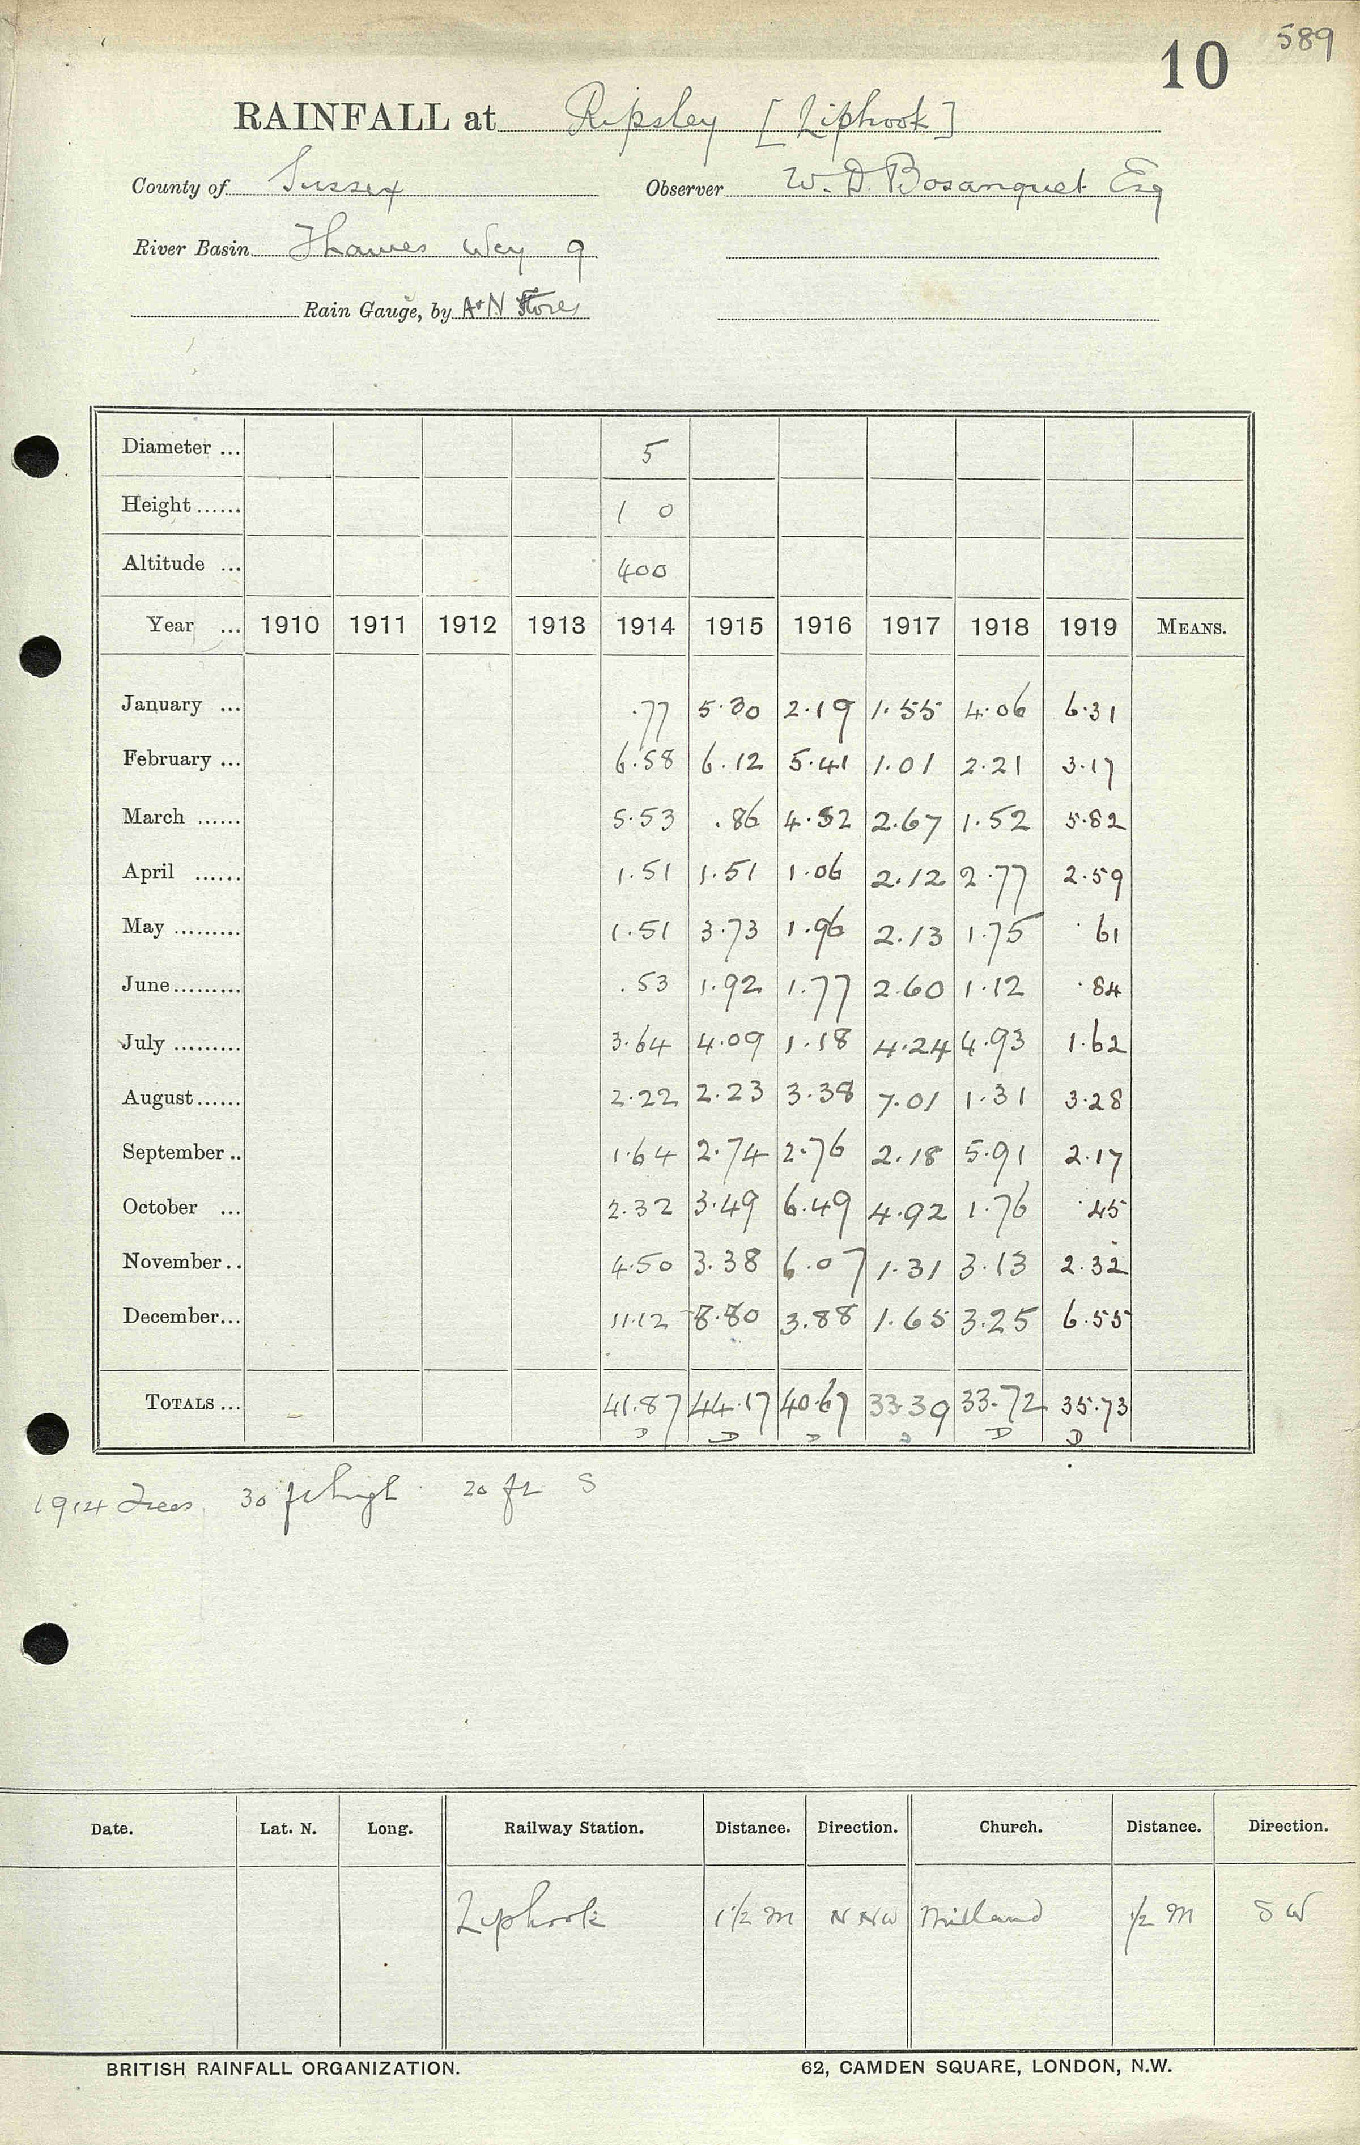 589
10
RAINFALL at Ripsley [Liphook]
County of Sussex Observer W. D. Bosanquet Esq
River Basin Thames Wey 9
Rain Gauge, by A+N Stores
Diameter ... 5
Height ...... 1 0
Altitude ... 400
Year ... 1910 1911 1912 1913 1914 1915 1916 1917 1918 1919 MEANS.
January ... .77 5.30 2.19 1.55 4.06 6.31
February ... 6.58 6.12 5.41 1.01 2.21 3.17
March ...... 5.53 .86 4.52 2.67 1.52 5.82
April ...... 1.51 1.51 1.06 2.12 2.77 2.59
May ......... 1.51 3.73 1.96 2.13 1.75 .61
June ......... .53 1.92 1.77 2.60 1.12 .84
July ......... 3.64 4.09 1.18 4.24 4.93 1.62
August ...... 2.22 2.23 3.38 7.01 1.31 3.28
September .. 1.64 2.74 2.76 2.18 5.91 2.17
October ... 2.32 3.49 6.49 4.92 1.76 .45
November .. 4.50 3.38 6.07 1.31 3.13 2.32
December ... 11.12 8.80 3.88 1.65 3.25 6.55
TOTALS ... 41.87 44.17 40.67 33.39 33.72 35.73
D D D D D D
1914 Trees 30 ft high 20 ft S
Date. Lat. N. Long. Railway Station. Distance. Direction. Church. Distance. Direction.
Liphook 1½ m NNW Milland ½ m SW
BRITISH RAINFALL ORGANIZATION. 62, CAMDEN SQUARE, LONDON, N.W.